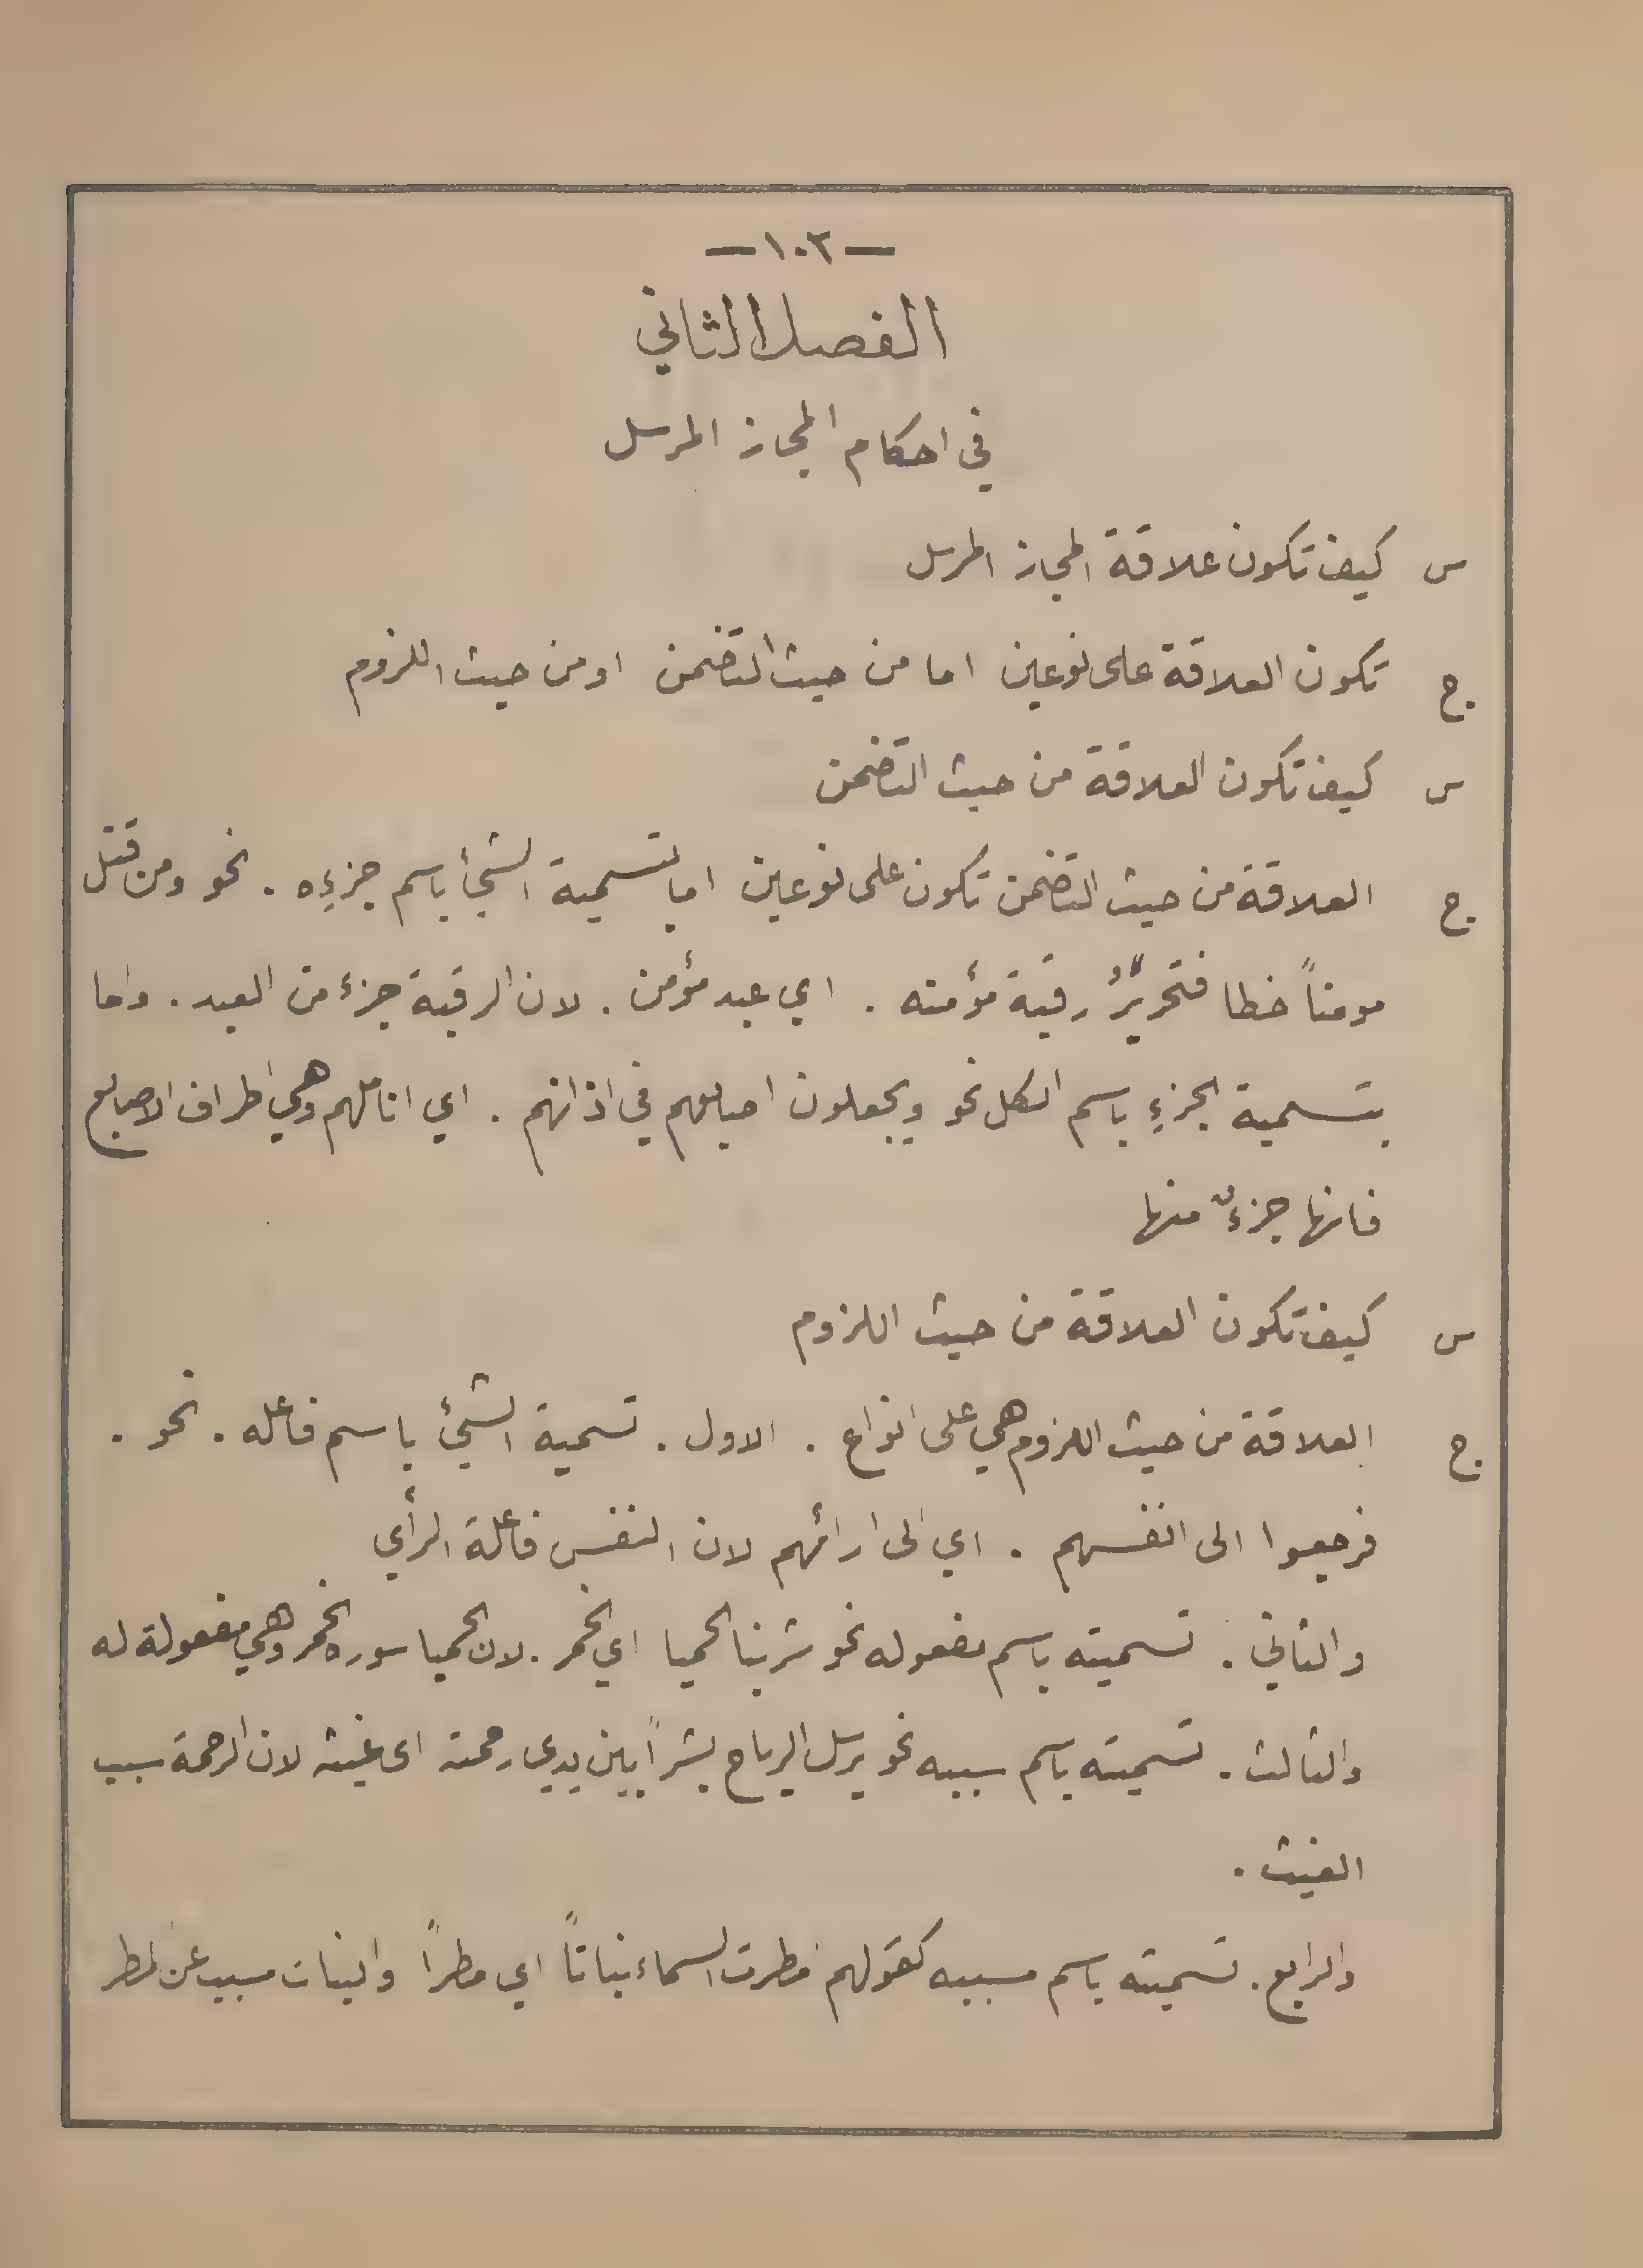 — ١٠٣ —
الفصل الثاني
في احكام المجاز المرسل
س كيف تكون علاقة المجاز المرسل
ج تكون العلاقة على نوعين اما من حيث التضمن او من حيث اللزوم
س كيف تكون العلاقة من حيث التضمن
ج العلاقة من حيث التضمن تكون على نوعين اما بتسمية الشئ باسم جزءِه . نحو ومن قتل
مومناً خطا فتحريرٌ رقبة مؤمنه . اي عبد مؤمن . لان الرقبة جزء من العبد . واما
بتسمية الجزءِ باسم الكل نحو ويجعلون اصابعهم في اذانهم . اي اناملهم وهي اطراف الاصابع
فانها جزءٌ منها
س كيف تكون العلاقة من حيث اللزوم
ج العلاقة من حيث اللزوم هي على انواع . الاول . تسمية الشئ باسم فاعله . نحو .
فرجعوا الى انفسهم . اي الى ارائهم لان النفس فاعلة الرأي
والثاني . تسميته باسم مفعوله نحو شربنا الحميا اي الخمر . لان الحميا سوره الخمر وهي مفعولة له
والثالث . تسميته باسم سببه نحو يرسل الرياح بشراً بين يدي رحمته اي غيثه لان الرحمة سبب
الغيث .
والرابع . تسميته باسم مسببه كقولهم مطرت السماء نباتاً اي مطراً والنبات مسبب عن المطر